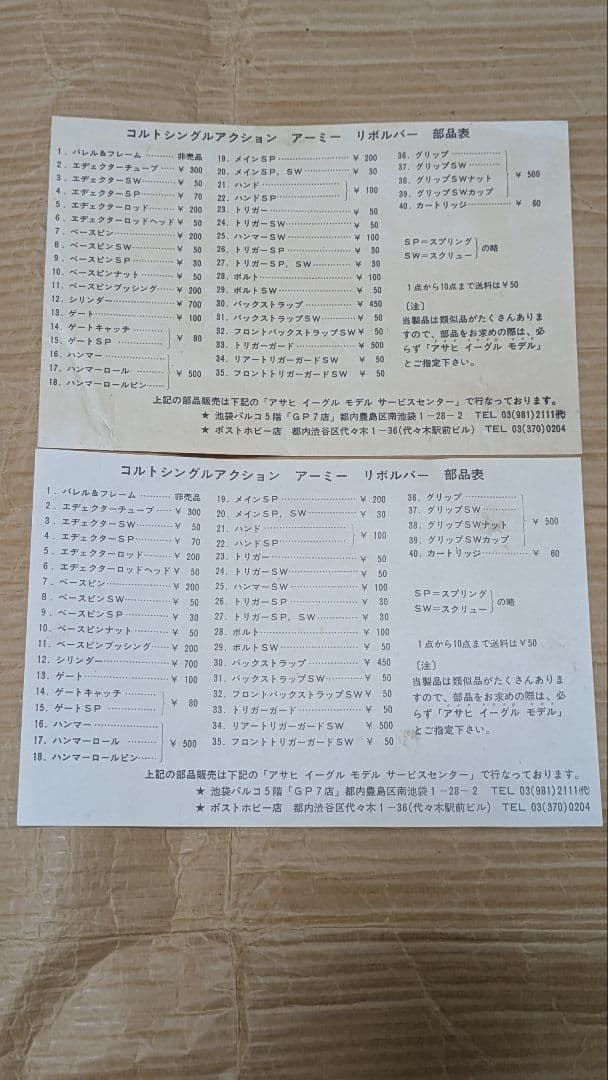 コルトシングルアクション アーミー リボルバー 部品表
1. バレル&フレーム ………… 非売品
2. エヂェクターチューブ…… ¥ 300
3. エヂェクターSW ………… ¥ 50
4. エヂェクターSP ………… ¥ 70
5. エヂェクターロッド……… ¥ 200
6. エヂェクターロッドヘッド ¥ 50
7. ベースピン………………… ¥ 200
8. ベースピンSW …………… ¥ 50
9. ベースピンSP …………… ¥ 30
10. ベースピンナット ……… ¥ 50
11. ベースピンブッシング… ¥ 200
12. シリンダー……………… ¥ 700
13. ゲート…………………… ¥ 100
14. ゲートキャッチ ……
15. ゲートSP ……………
¥ 80
16. ハンマー………………
17. ハンマーロール ………
18. ハンマーロールピン……
¥ 500
19. メインSP ……………… ¥ 200
20. メインSP, SW ………… ¥ 30
21. ハンド …………………
22. ハンドSP ……………
¥ 100
23. トリガー ……………… ¥ 50
24. トリガーSW …………… ¥ 50
25. ハンマーSW …………… ¥ 100
26. トリガーSP …………… ¥ 30
27. トリガーSP, SW ……… ¥ 30
28. ボルト ………………… ¥ 100
29. ボルトSW ……………… ¥ 50
30. バックストラップ ……… ¥ 450
31. バックストラップSW …… ¥ 50
32. フロントバックストラップSW ¥ 50
33. トリガーガード ………… ¥ 500
34. リアートリガーガードSW ¥ 50
35. フロントトリガーガードSW ¥ 50
36. グリップ ………………
37. グリップSW……………
38. グリップSWナット ……
39. グリップSWカップ ……
¥ 500
40. カートリッジ …………… ¥ 60
SP=スプリング
SW=スクリュー
の略
1点から10点まで送料は¥50
〔注〕
当製品は類似品がたくさんありま
すので、部品をお求めの際は、必
らず「アサヒ イーグル モデル」
とご指定下さい。
上記の部品販売は下記の「アサヒ イーグル モデル サービスセンター」で行なっております。
★ 池袋パルコ5階「GP7店」都内豊島区南池袋1-28-2 TEL 03(981)2111(代)
★ ポストホビー店 都内渋谷区代々木1-36(代々木駅前ビル) TEL 03(370)0204
コルトシングルアクション アーミー リボルバー 部品表
1. バレル&フレーム ………… 非売品
2. エヂェクターチューブ…… ¥ 300
3. エヂェクターSW ………… ¥ 50
4. エヂェクターSP ………… ¥ 70
5. エヂェクターロッド……… ¥ 200
6. エヂェクターロッドヘッド ¥ 50
7. ベースピン………………… ¥ 200
8. ベースピンSW …………… ¥ 50
9. ベースピンSP …………… ¥ 30
10. ベースピンナット ……… ¥ 50
11. ベースピンブッシング… ¥ 200
12. シリンダー……………… ¥ 700
13. ゲート…………………… ¥ 100
14. ゲートキャッチ ……
15. ゲートSP ……………
¥ 80
16. ハンマー………………
17. ハンマーロール ………
18. ハンマーロールピン……
¥ 500
19. メインSP ……………… ¥ 200
20. メインSP, SW ………… ¥ 30
21. ハンド …………………
22. ハンドSP ……………
¥ 100
23. トリガー ……………… ¥ 50
24. トリガーSW …………… ¥ 50
25. ハンマーSW …………… ¥ 100
26. トリガーSP …………… ¥ 30
27. トリガーSP, SW ……… ¥ 30
28. ボルト ………………… ¥ 100
29. ボルトSW ……………… ¥ 50
30. バックストラップ ……… ¥ 450
31. バックストラップSW …… ¥ 50
32. フロントバックストラップSW ¥ 50
33. トリガーガード ………… ¥ 50
34. リアートリガーガードSW ¥ 500
35. フロントトリガーガードSW ¥ 50
36. グリップ ………………
37. グリップSW……………
38. グリップSWナット
39. グリップSWカップ ……
¥ 500
40. カートリッジ …………… ¥ 60
SP=スプリング
SW=スクリュー
の略
1点から10点まで送料は¥50
〔注〕
当製品は類似品がたくさんありま
すので、部品をお求めの際は、必
らず「アサヒ イーグル モデル」
とご指定下さい。
上記の部品販売は下記の「アサヒ イーグル モデル サービスセンター」で行なっております。
★ 池袋パルコ5階「GP7店」都内豊島区南池袋1-28-2 TEL 03(981)2111(代)
★ ポストホビー店 都内渋谷区代々木1-36(代々木駅前ビル) TEL 03(370)0204